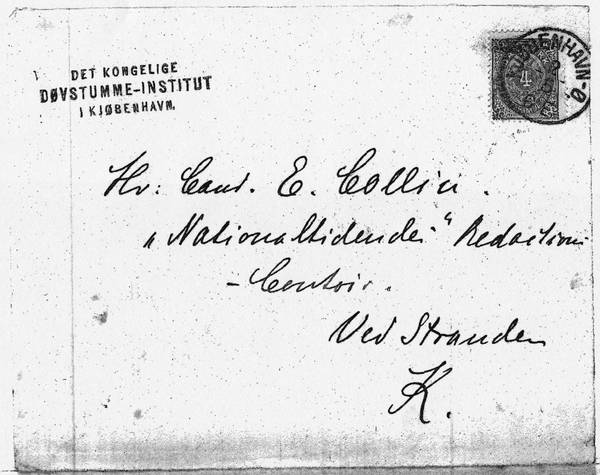 DET KONGELIGE
DØVSTUMME-INSTITUT
I KJØBENHAVN.
4
KJØBENHAVN-Ø
Hr: Cand. E. Collin.
„Nationaltidendes“ Redactions
- Contoir.
Ved Stranden
K.